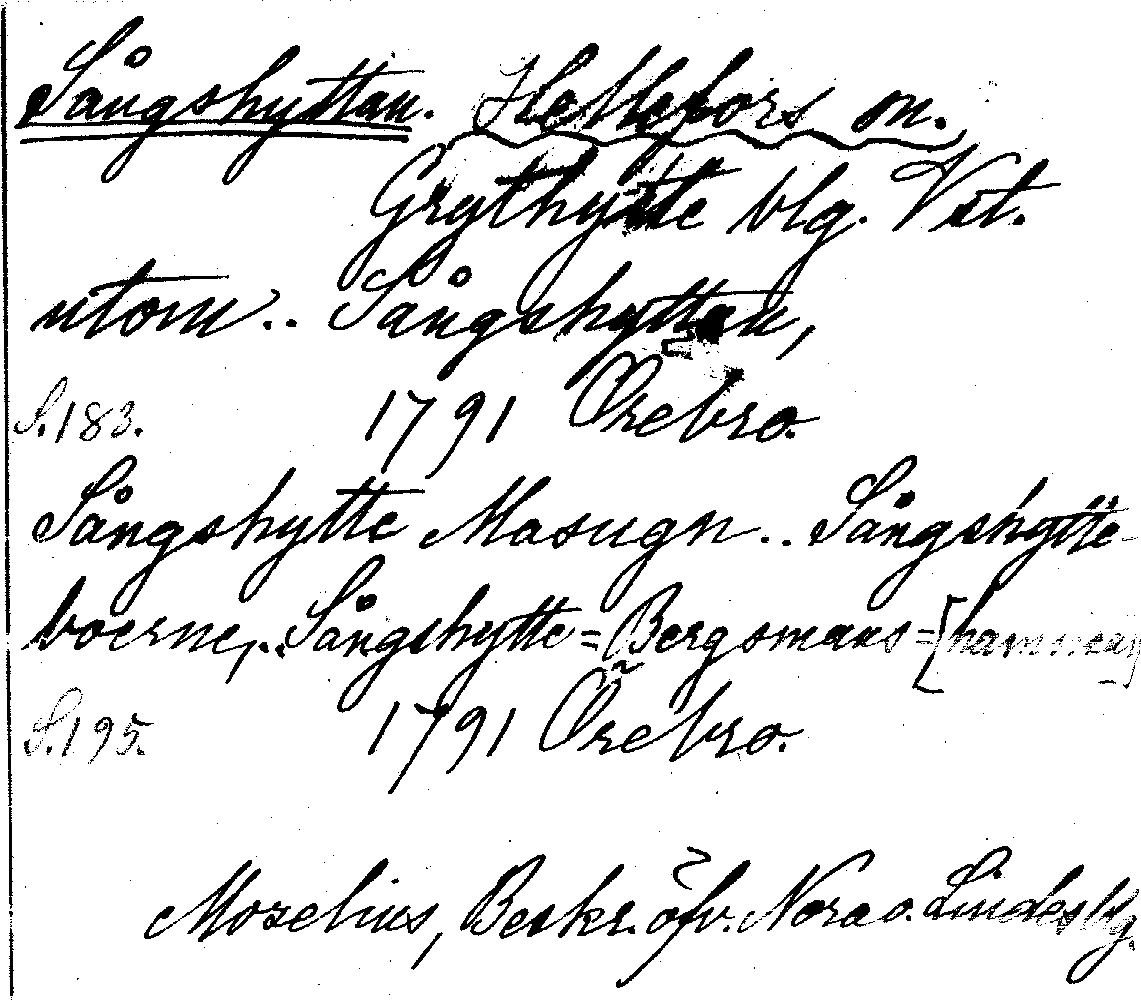 Sångshyttan. Hellefors sn.
Grythytte blg. Vst.
utom.. Sångshyttan,
S.183. 1791 Örebro.
Sångshytte Masugn.. Sångshytte-
boerne,.. Sångshytte=Bergsmans=[hammeren]
S.195. 1791 Örebro.
Moselius, Beskr. öfv. Nora o. Lindes blg.